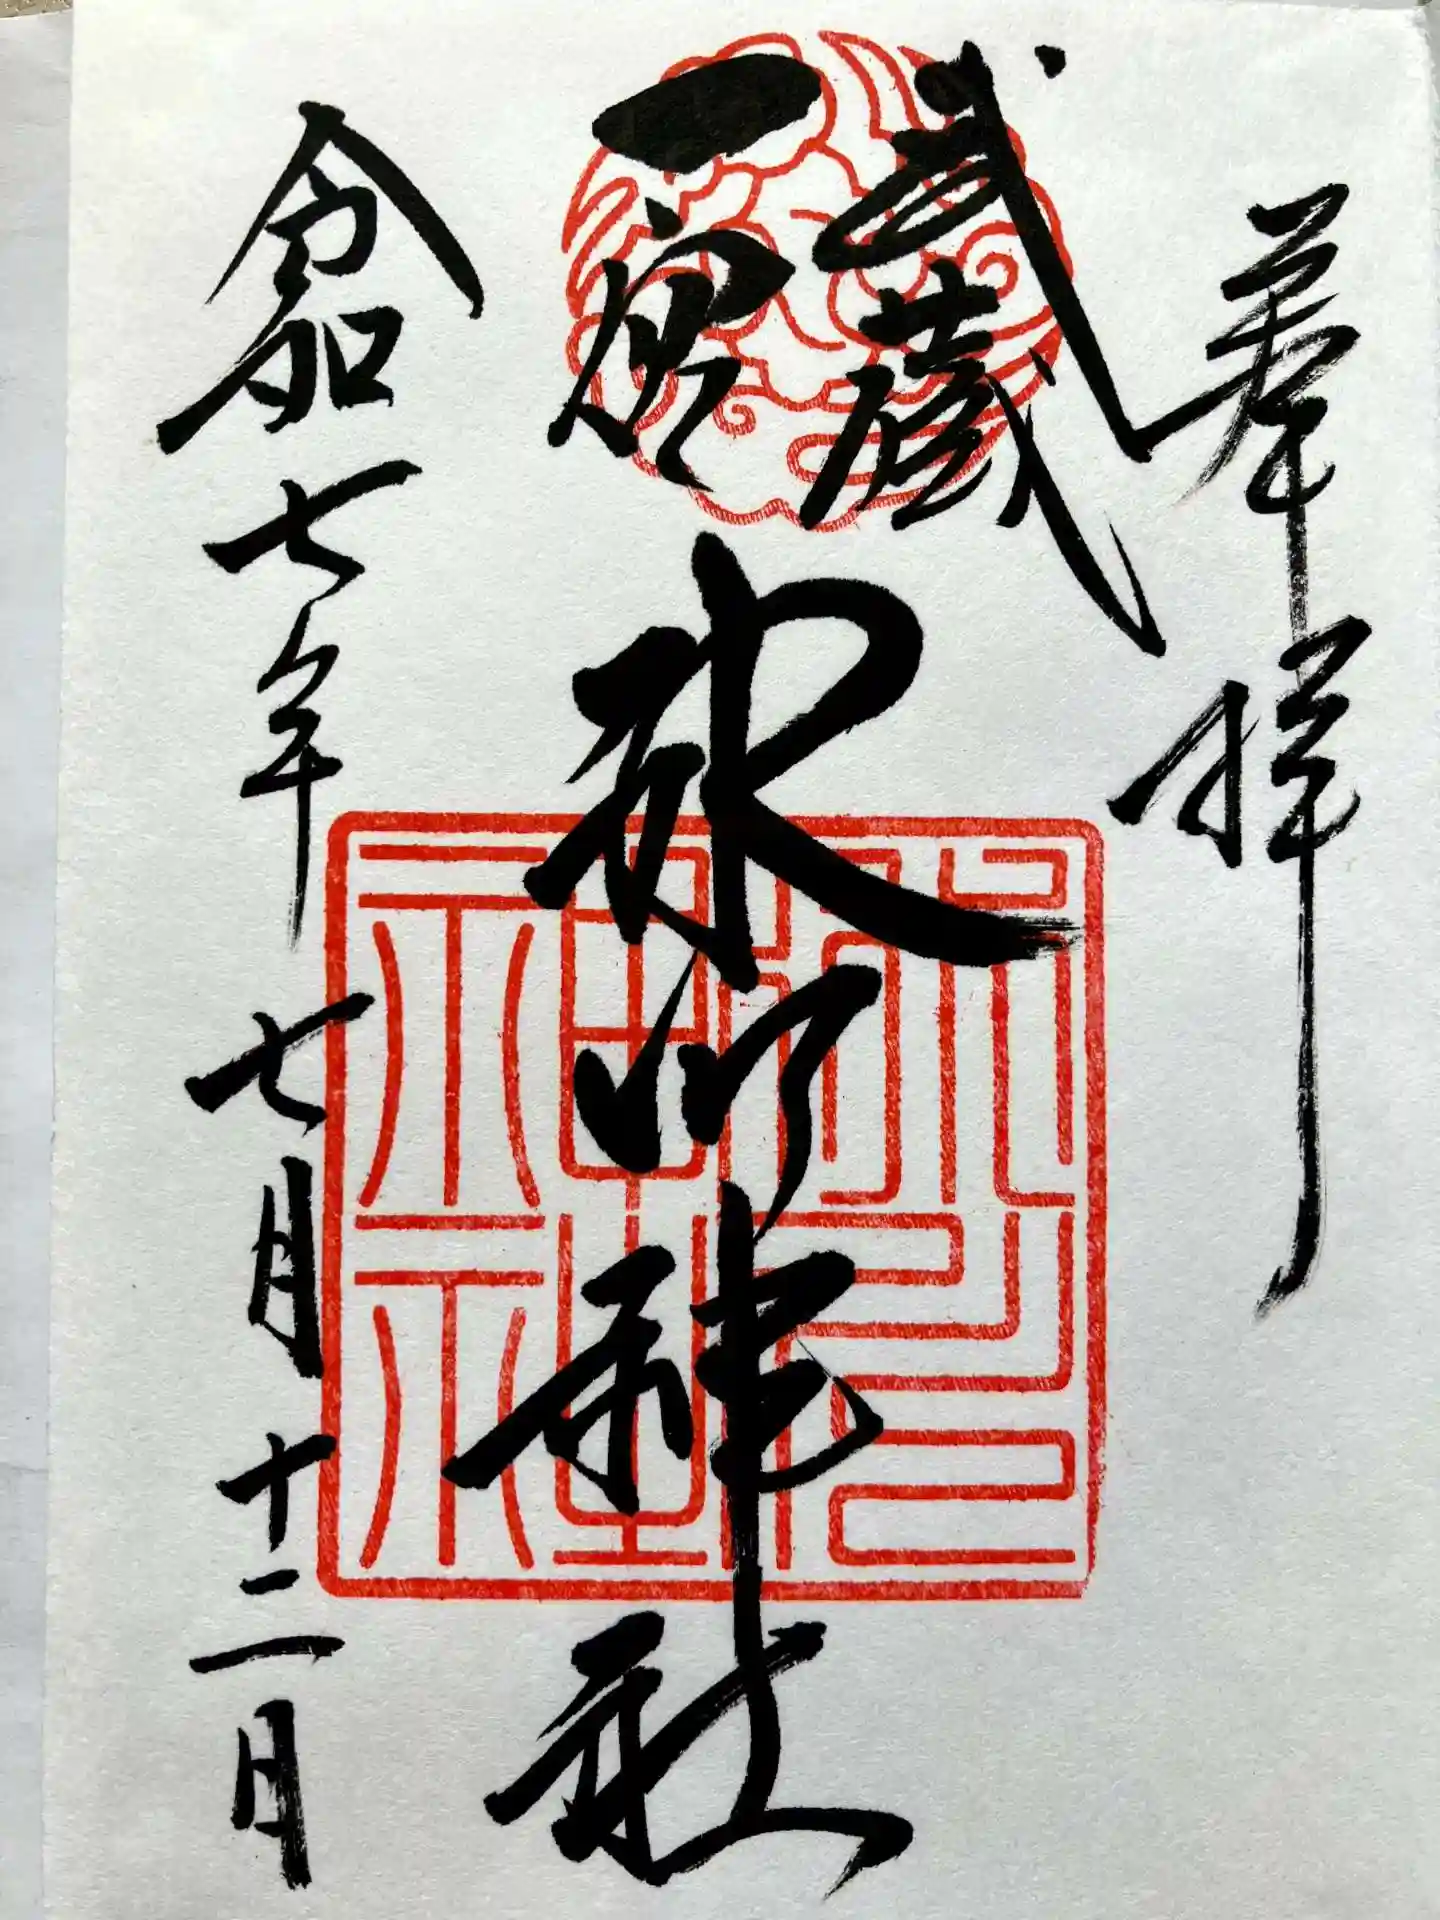 奉拝
武蔵
一宮
氷川神社
令和七年七月十二日
氷川
神社